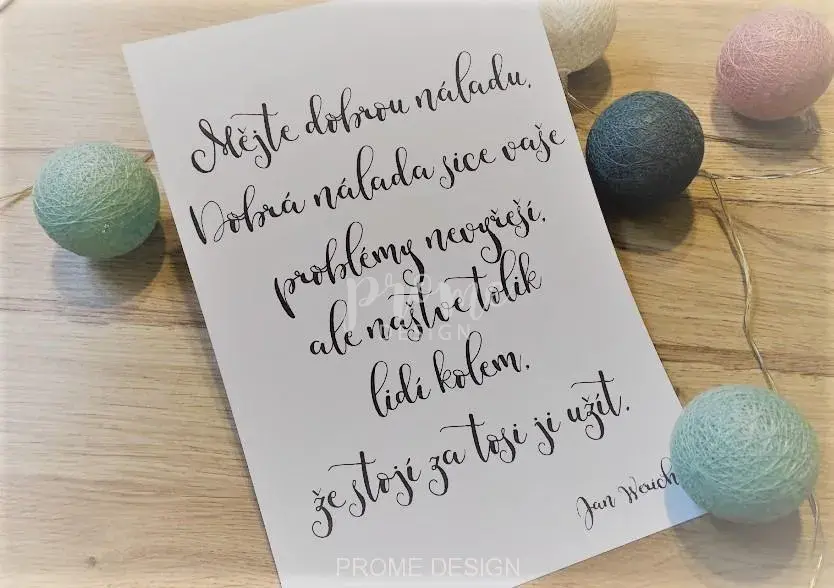 Mějte dobrou náladu.
Dobrá nálada sice vaše
problémy nevyřeší,
ale naštve tolik
lidí kolem,
že stojí za to si ji užít.
Jan Werich
Prome
DESIGN
PROME DESIGN